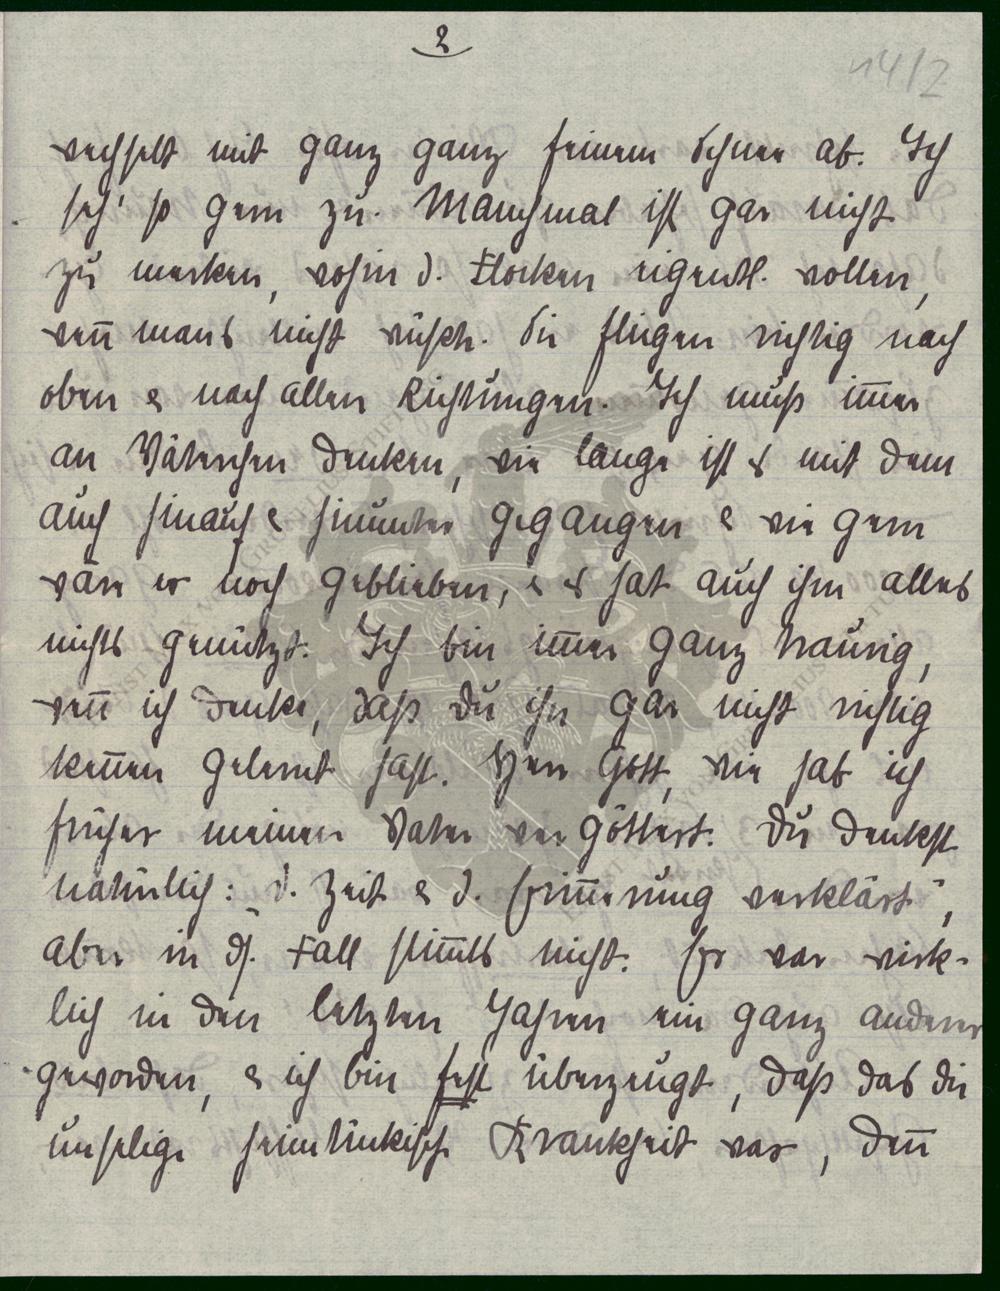 2
14/2
wechselt mit ganz ganz feinem Schnee ab. Ich
seh' so gern zu. Manchmal ist gar nicht
zu merken, wohin d. Flocken eigentl. wollen,
weñ mans nicht wüsste. Sie fliegen richtig nach
oben & nach allen Richtungen. Ich muß im̃er
an Väterchen denken, wie lange ist es mit dem
auch hinauf & hinunter gegangen & wie gern
wäre er noch geblieben, & es hat auch ihm alles
nichts genützt. Ich bin im̃er ganz traurig,
weñ ich denke, daß Du ihn gar nicht richtig
keñen gelernt hast. Herr Gott, wie hab ich
früher meinen Vater vergöttert. Du denkst
natürlich: „d. Zeit & d. Eriñerung verklärt",
aber in ds. Fall stim̃ts nicht. Er war wirk-
lich in den letzten Jahren ein ganz anderer
geworden, & ich bin fest überzeugt, daß das die
unselige heimtückische Krankheit war, deñ